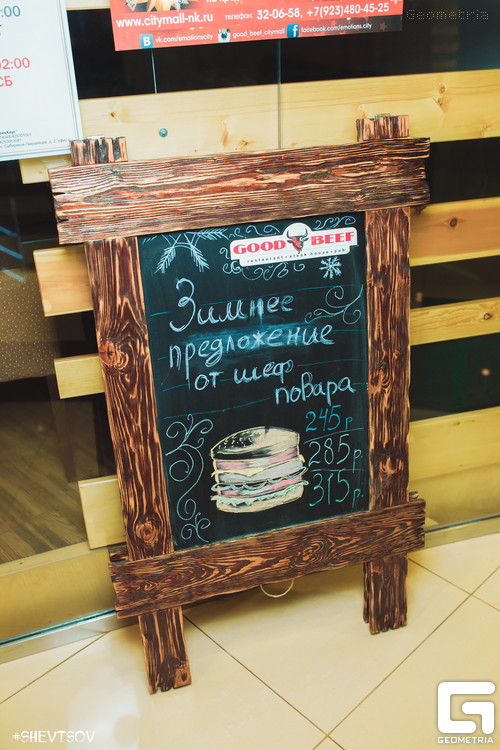 Geometria
www.citymall-nk.ru
телефон: 32-06-58, +7(923)480-45-25
vk.com/emotionscity
good_beef_citymall
facebook.com/emotions.city
:00
02:00
СБ
GOOD BEEF
restaurant • steak house • pub
Зимнее
предложение
от шеф
повара
245р
285р
315р.
#SHEVTSOV
GEOMETRIA